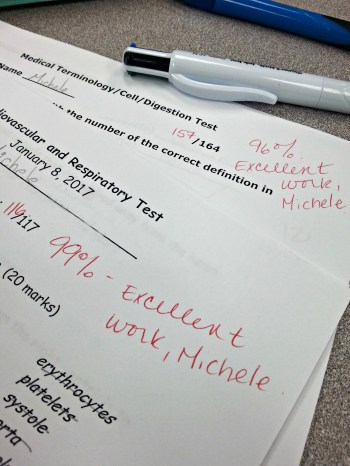 Medical Terminology/Cell/Digestion Test
Name Michele
the number of the correct definition in
157/164
96%.
Excellent
work,
Michele
diovascular and Respiratory Test
January 8, 2017
ichele
116/117
99% - Excellent
work, Michele.
(20 marks)
erythrocytes
platelets
systole
orta